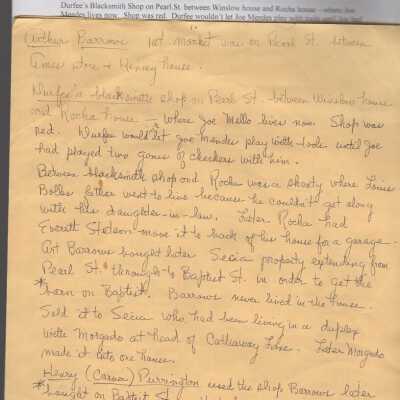 Durfee's Blacksmith Shop on Pearl St. between Winslow house and Rocha house – where Joe
Mendes lives now. Shop was red. Durfee wouldn't let Joe Mendes play with tools until Joe had
Arthur Barrows 1st market was on Pearl St. between
Grace store & Henry house.
Durfee's blacksmith shop on Pearl St. between Winslow house
and Rocha house – where Joe Mello lives now. Shop was
red. Durfee wouldn't let Joe Mendes play with tools until Joe
had played two games of checkers with him.
Between blacksmith shop and Rocha was a shanty where Louis
Bolles father went to live because he couldn't get along
with his daughter-in-law. Later Rocha had
Everett Stetson move it to back of his house for a garage.
Art Barrows bought later Secia property extending from
Pearl St. through to Baptist St. in order to get the
*barn on Baptist. Barrows never lived in the house.
Sold it to Secia who had been living in a duplex
with Morgado at head of Cathaway Lane. Later Morgado
made it into one house.
Henry (Carna) Purrington used the shop Barrows later
*bought on Baptist St.